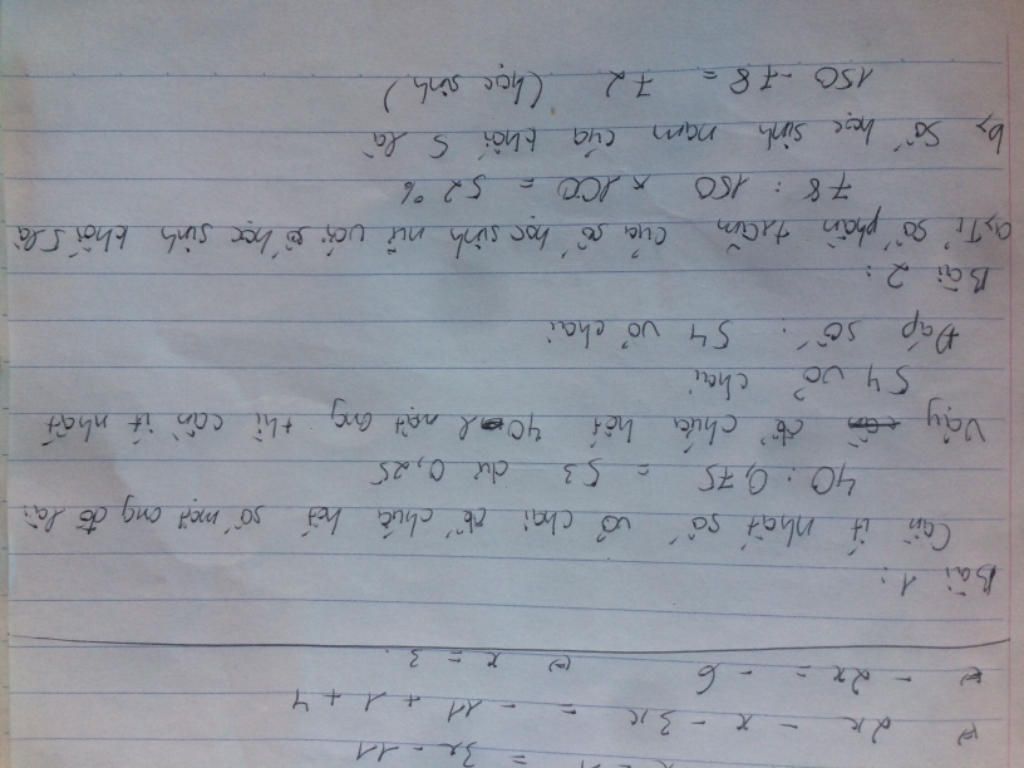 = 3x - 11
⇔ 2x - x - 3x = - 11 + 1 + 4
⇔ - 2x = - 6 ⇔ x = 3.
Bài 1:
Cần ít nhất số vỏ chai để chứa hết số mật ong đó là:
40 : 0,75 = 53 dư 0,25
Vậy để chứa hết 40 l mật ong thì cần ít nhất
54 vỏ chai
Đáp số: 54 vỏ chai
Bài 2:
a, Tỉ số phần trăm của số học sinh nữ với số học sinh khối 5 là
78 : 150 x 100 = 52 %
b, Số học sinh nam của khối 5 là
150 - 78 = 72 (học sinh)